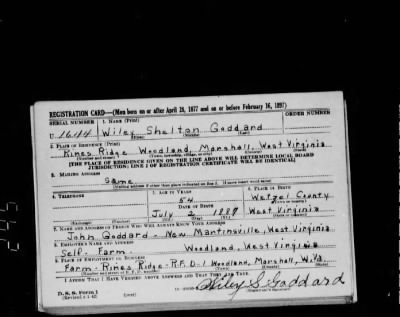 REGISTRATION CARD—(Men born on or after April 28, 1877 and on or before February 16, 1897)
SERIAL NUMBER 1. NAME (Print) ORDER NUMBER
U 1644 Wiley Shelton Goddard
(First) (Middle) (Last)
2. PLACE OF RESIDENCE (Print)
Rines Ridge Woodland, Marshall, West Virginia
(Number and street) (Town, township, village, or city) (County) (State)
[THE PLACE OF RESIDENCE GIVEN ON THE LINE ABOVE WILL DETERMINE LOCAL BOARD
JURISDICTION; LINE 2 OF REGISTRATION CERTIFICATE WILL BE IDENTICAL]
3. MAILING ADDRESS
Same
[Mailing address if other than place indicated on line 2. If same insert word same]
4. TELEPHONE 5. AGE IN YEARS 6. PLACE OF BIRTH
54 Wetzel County
DATE OF BIRTH (Town or county)
July 2 1887 West Virginia
(Exchange) (Number) (Mo.) (Day) (Yr.) (State or country)
7. NAME AND ADDRESS OF PERSON WHO WILL ALWAYS KNOW YOUR ADDRESS
John Goddard - New Martinsville, West Virginia
8. EMPLOYER'S NAME AND ADDRESS
Self - Farm. Woodland, West Virginia
9. PLACE OF EMPLOYMENT OR BUSINESS
Farm - Rines Ridge - R.F.D-1 Woodland, Marshall, W.Va.
(Number and street or R. F. D. number) (Town) (County) (State)
I AFFIRM THAT I HAVE VERIFIED ABOVE ANSWERS AND THAT THEY ARE TRUE.
D. S. S. Form 1 Wiley S Goddard
(Revised 4-1-42) (over)